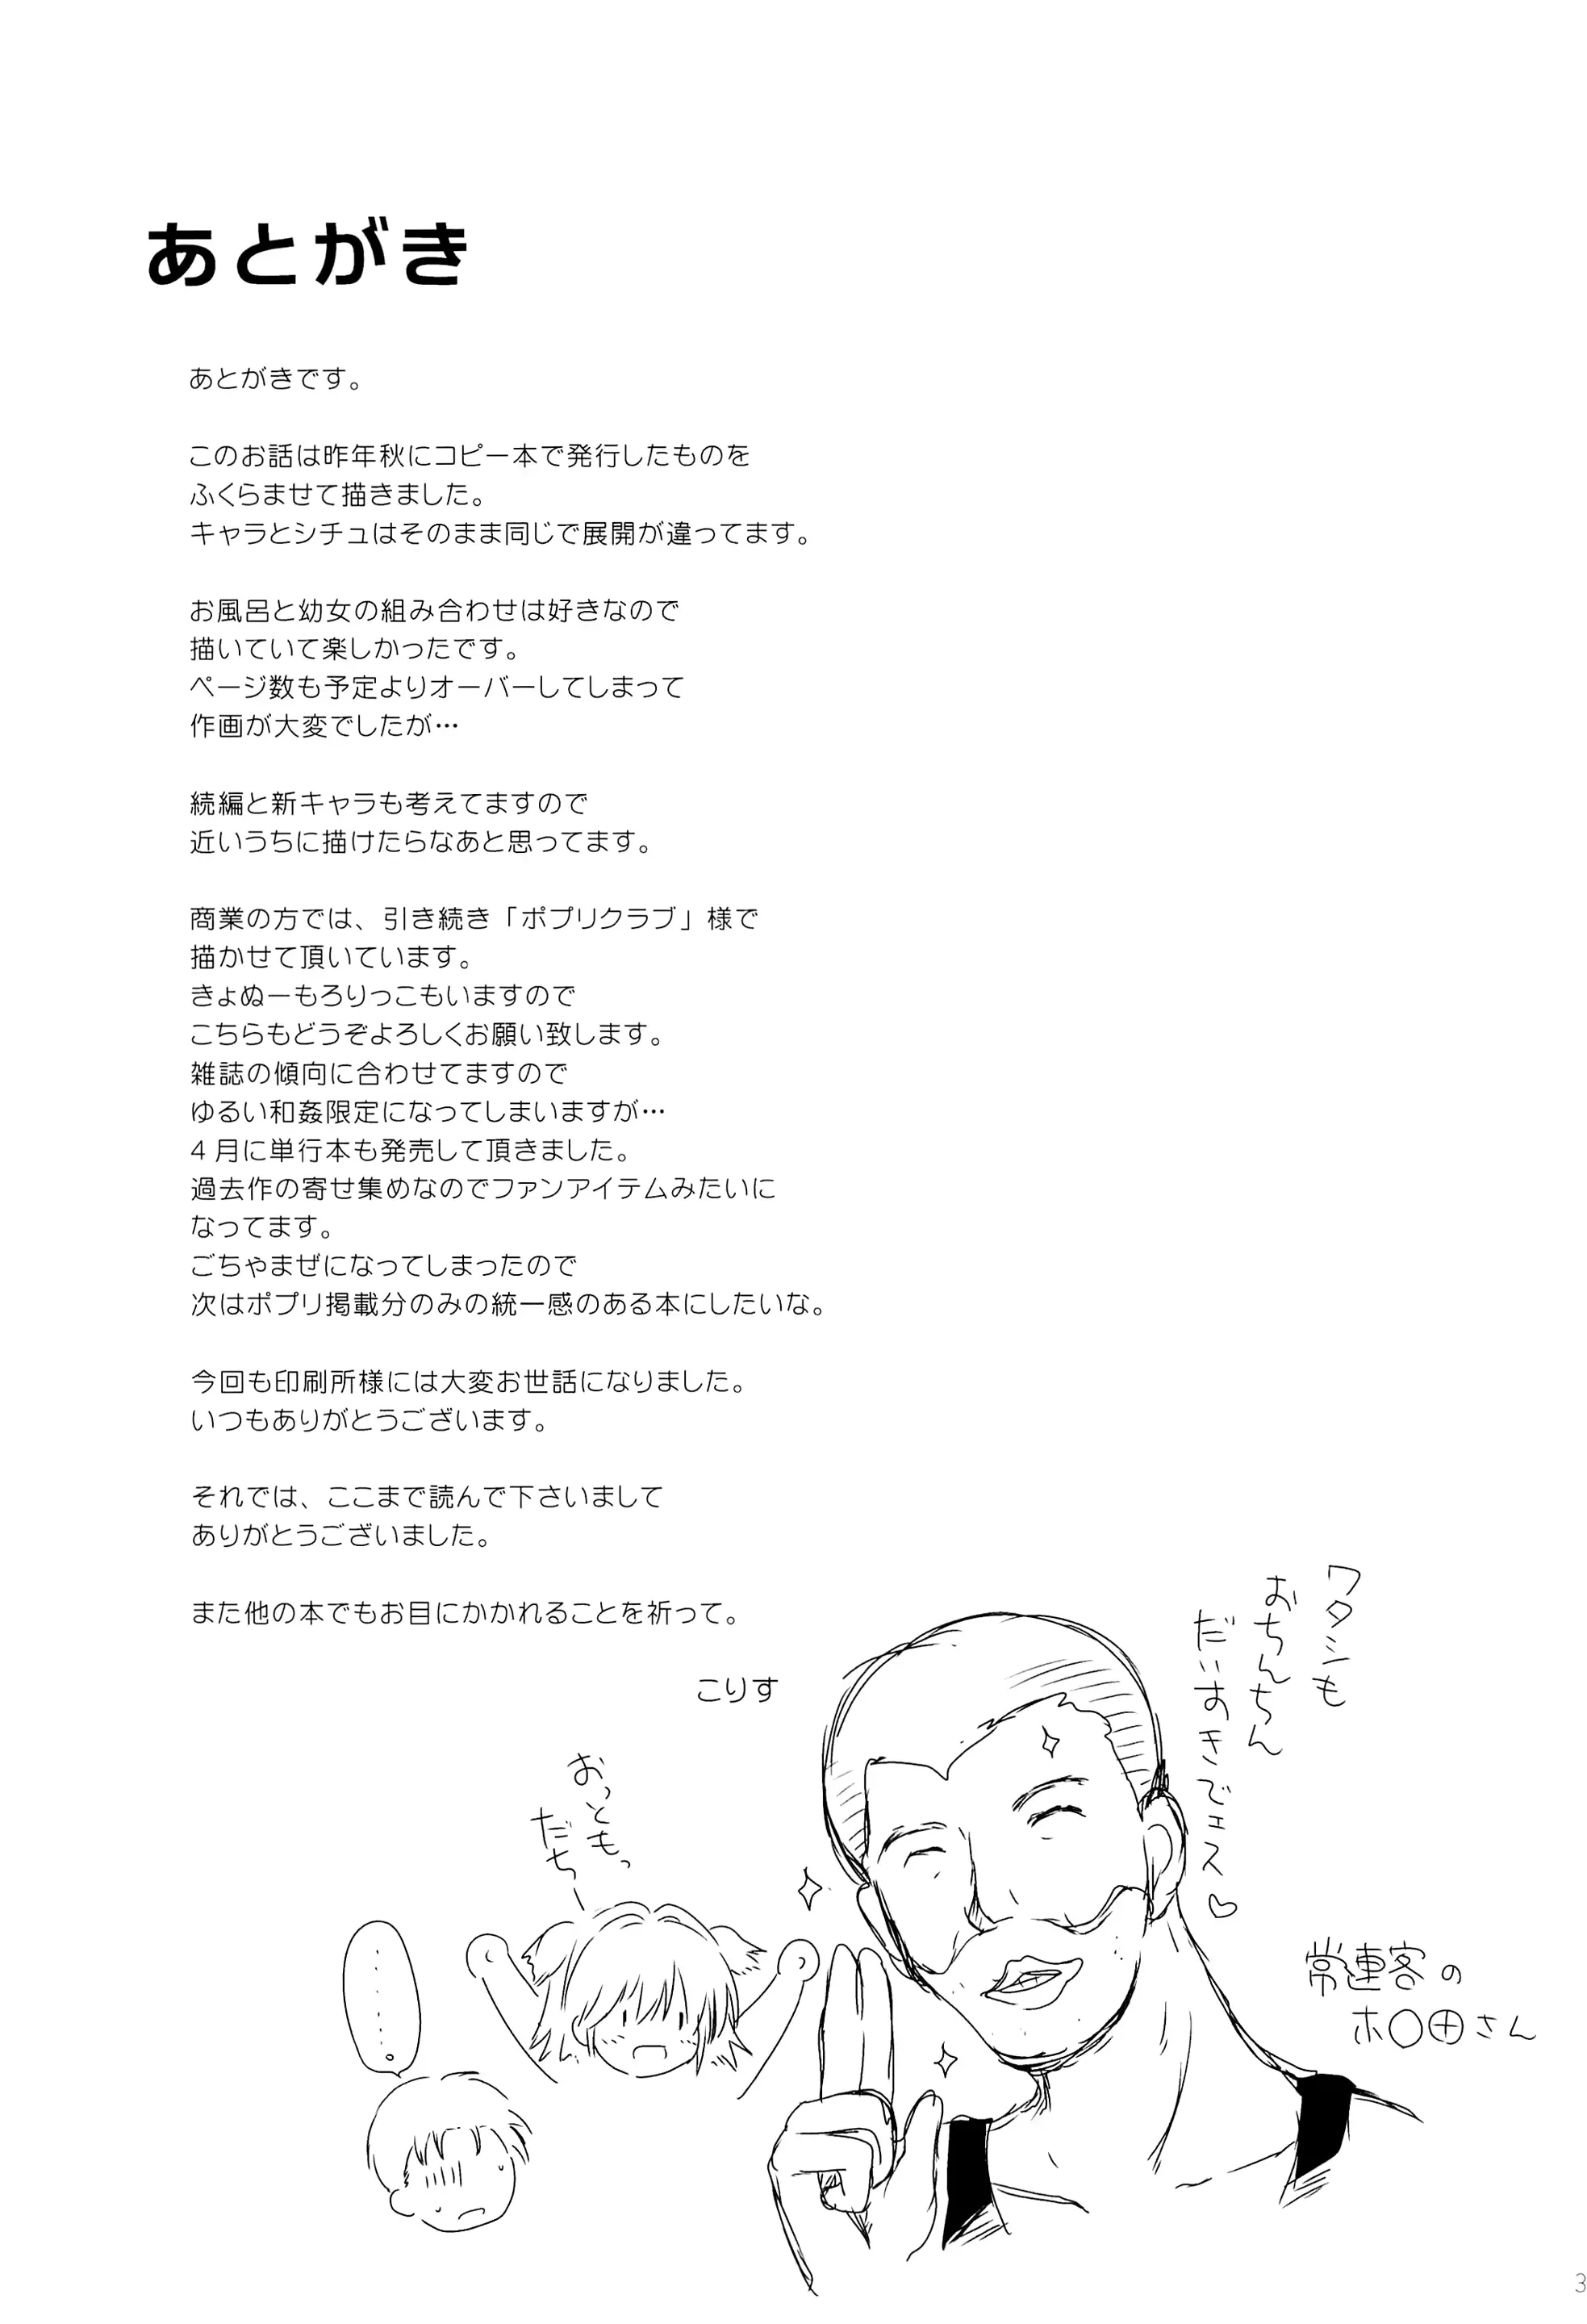 あとがき
あとがきです。
このお話は昨年秋にコピー本で発行したものを
ふくらませて描きました。
キャラとシチュはそのまま同じで展開が違ってます。
お風呂と幼女の組み合わせは好きなので
描いていて楽しかったです。
ページ数も予定よりオーバーしてしまって
作画が大変でしたが…
続編と新キャラも考えてますので
近いうちに描けたらなあと思ってます。
商業の方では、引き続き「ポプリクラブ」様で
描かせて頂いています。
きょぬーもろりっこもいますので
こちらもどうぞよろしくお願い致します。
雑誌の傾向に合わせてますので
ゆるい和姦限定になってしまいますが…
4月に単行本も発売して頂きました。
過去作の寄せ集めなのでファンアイテムみたいに
なってます。
ごちゃまぜになってしまったので
次はポプリ掲載分のみの統一感のある本にしたいな。
今回も印刷所様には大変お世話になりました。
いつもありがとうございます。
それでは、ここまで読んで下さいまして
ありがとうございました。
また他の本でもお目にかかれることを祈って。
こりす
ワタシも
おちんちん
だいすきでェス♡
おっともっ
だちー
……。
常連客の
ホ○田さん
3